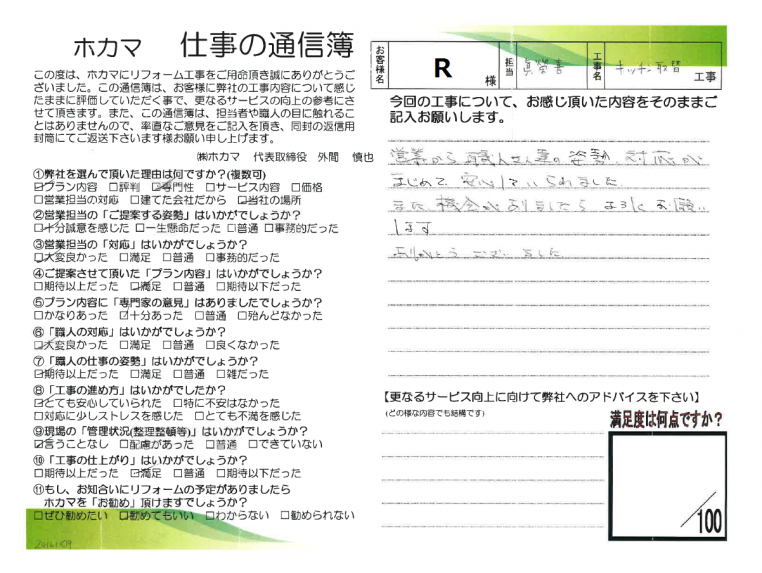 ホカマ 仕事の通信簿
この度は、ホカマにリフォーム工事をご用命頂き誠にありがとうご
ざいました。この通信簿は、お客様に弊社の工事内容について感じ
たままに評価していただく事で、更なるサービスの向上の参考にさ
せて頂きます。また、この通信簿は、担当者や職人の目に触れるこ
とはありませんので、率直なご意見をご記入を頂き、同封の返信用
封筒にてご返送下さいます様お願い申し上げます。
㈱ホカマ 代表取締役 外間 慎也
①弊社を選んで頂いた理由は何ですか?(複数可)
☑プラン内容 □評判 ☑専門性 □サービス内容 □価格
□営業担当の対応 □建てた会社だから ☑当社の場所
②営業担当の「ご提案する姿勢」はいかがでしょうか?
☑十分誠意を感じた □一生懸命だった □普通 □事務的だった
③営業担当の「対応」はいかがでしょうか?
☑大変良かった □満足 □普通 □事務的だった
④ご提案させて頂いた「プラン内容」はいかがでしょうか?
□期待以上だった ☑満足 □普通 □期待以下だった
⑤プラン内容に「専門家の意見」はありましたでしょうか?
□かなりあった ☑十分あった □普通 □殆んどなかった
⑥「職人の対応」はいかがでしょうか?
☑大変良かった □満足 □普通 □良くなかった
⑦「職人の仕事の姿勢」はいかがでしょうか?
☑期待以上だった □満足 □普通 □雑だった
⑧「工事の進め方」はいかがでしたか?
☑とても安心していられた □特に不安はなかった
□対応に少しストレスを感じた □とても不満を感じた
⑨現場の「管理状況(整理整頓等)」はいかがでしょうか?
☑言うことなし □配慮があった □普通 □できていない
⑩「工事の仕上がり」はいかがでしょうか?
□期待以上だった ☑満足 □普通 □期待以下だった
⑪もし、お知合いにリフォームの予定がありましたら
ホカマを「お勧め」頂けますでしょうか?
□ぜひ勧めたい ☑勧めてもいい □わからない □勧められない
お客様名 R 様 担当 工事名 キッチン取替 工事
今回の工事について、お感じ頂いた内容をそのままご
記入お願いします。
営業から職人さん達の姿勢、対応が
まじめで安心していられました
また機会がありましたらよろしくお願い
します
ありがとうございました
【更なるサービス向上に向けて弊社へのアドバイスを下さい】
(どの様な内容でも結構です)
満足度は何点ですか?
/100